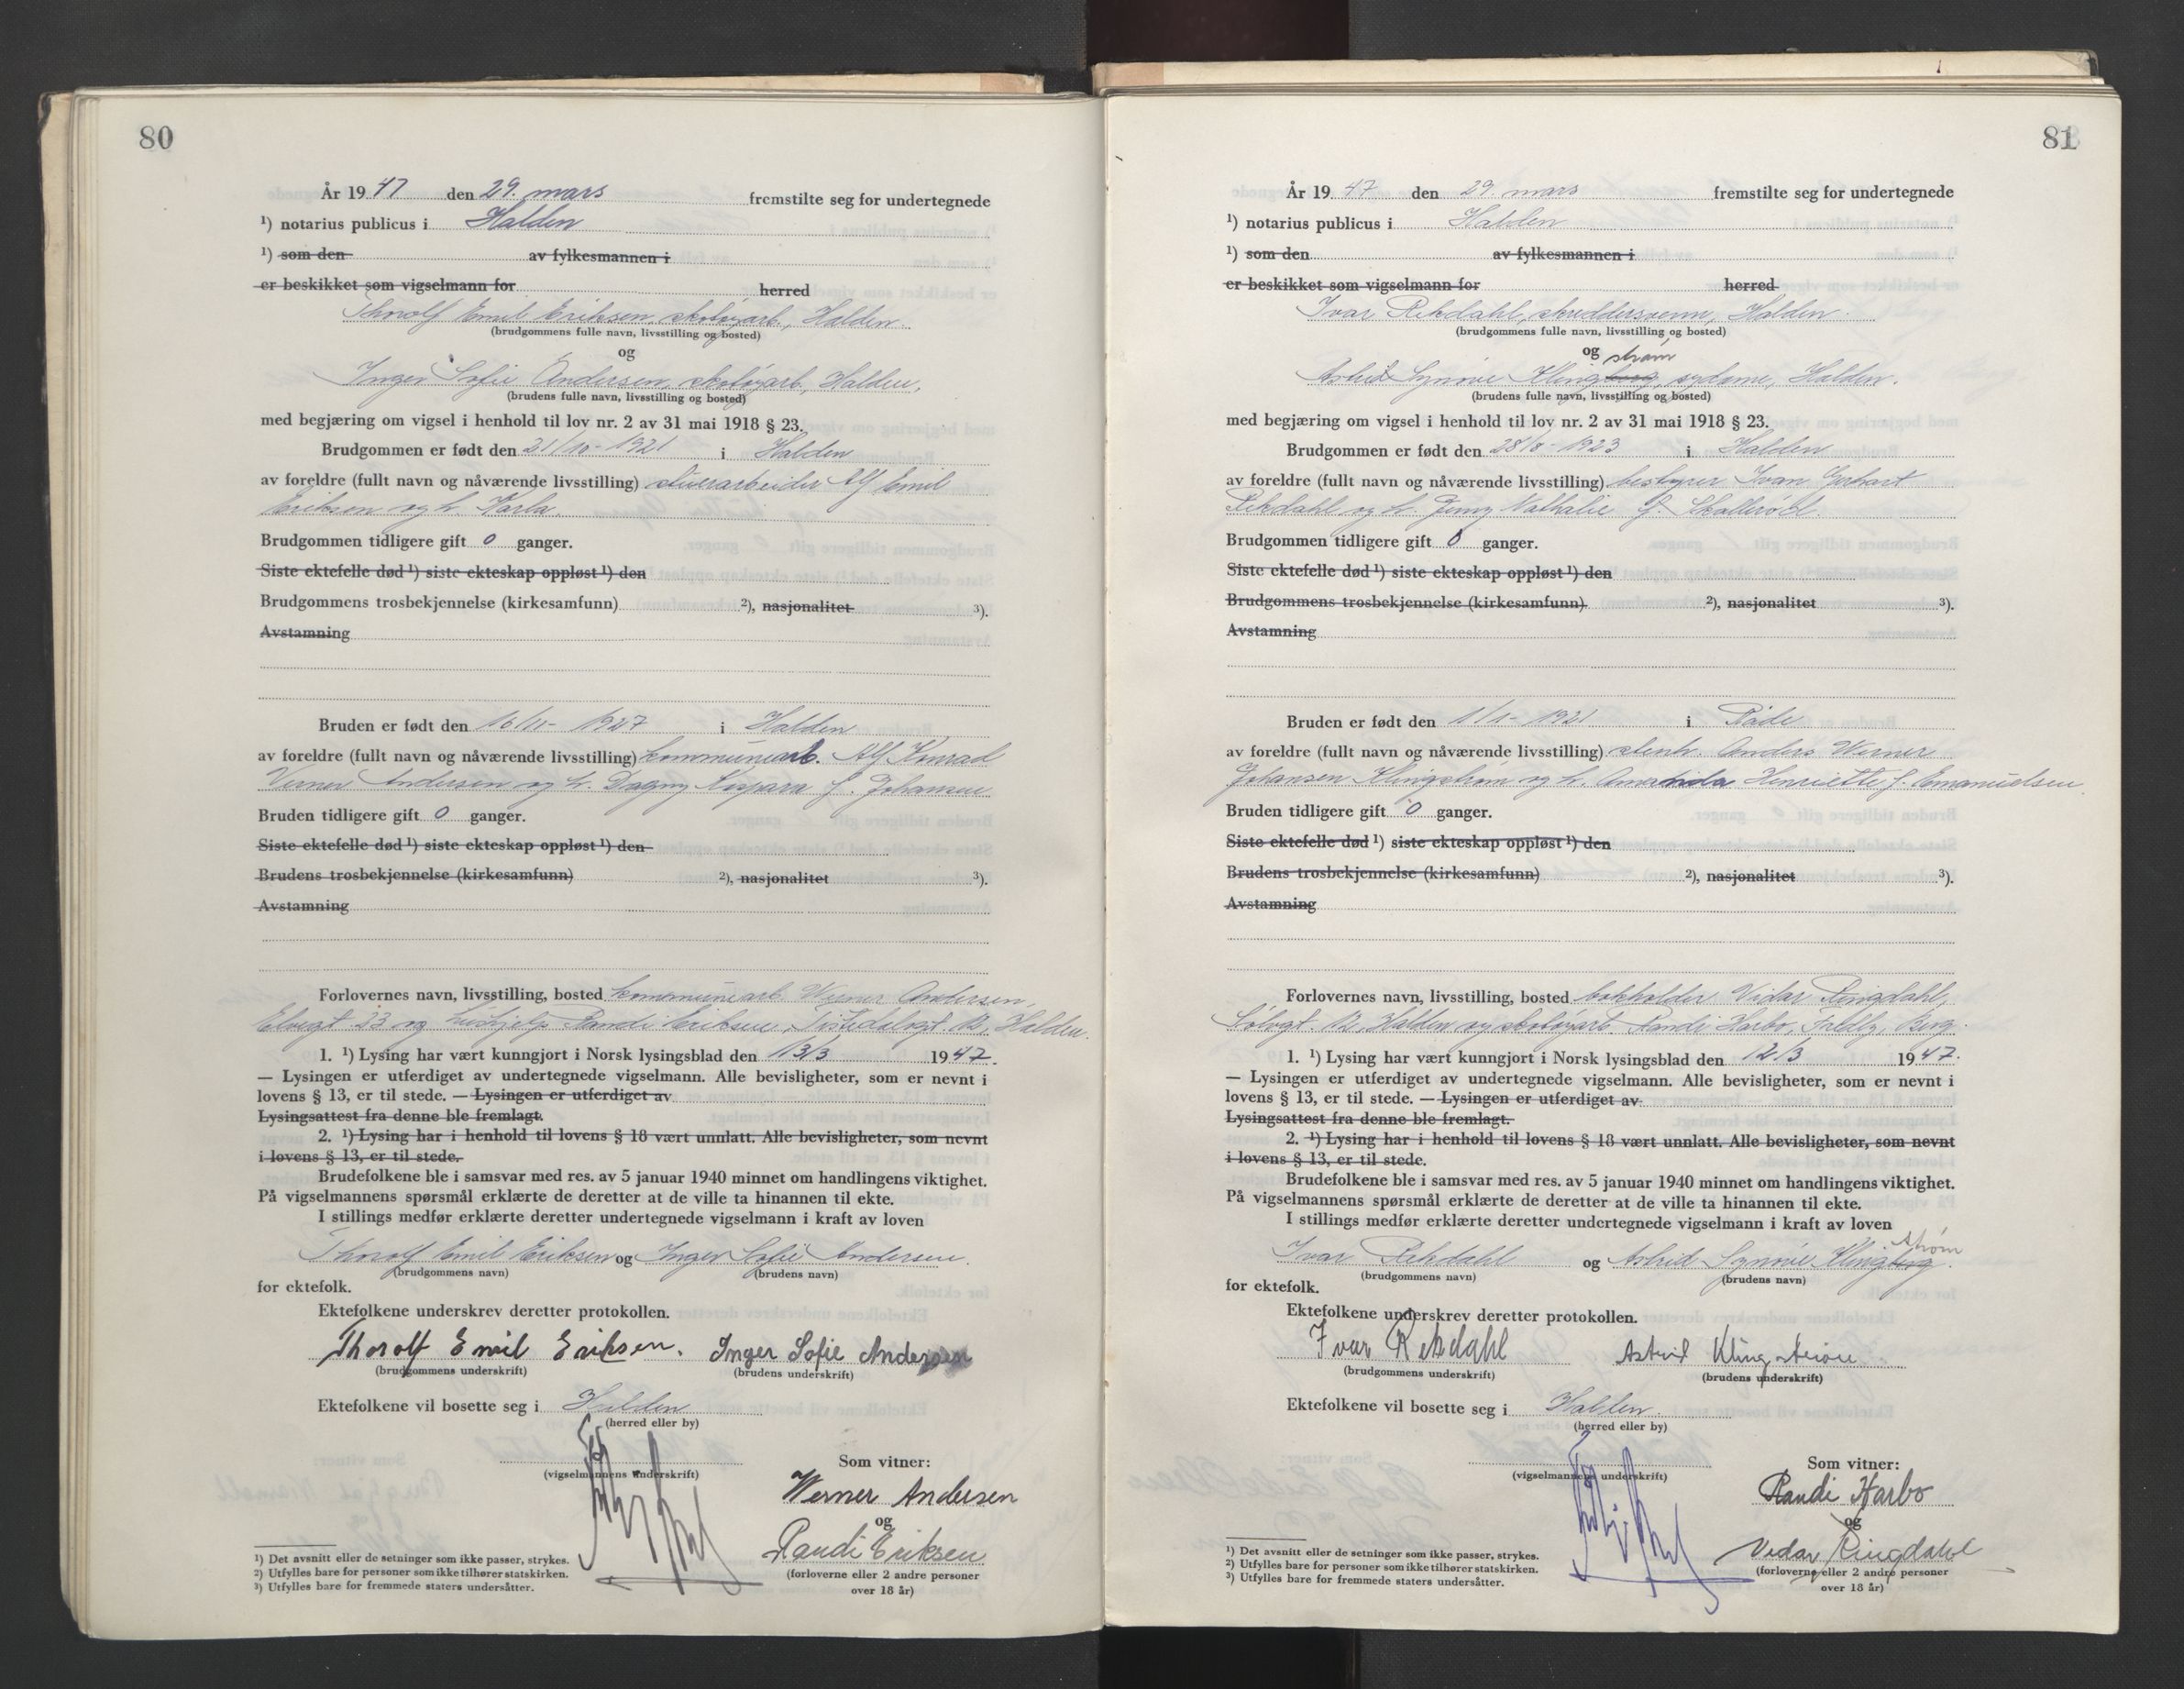 80
År 1947 den 29. mars fremstilte seg for undertegnede
¹) notarius publicus i Halden
¹) som den av fylkesmannen i
er beskikket som vigselmann for herred
Thorolf Emil Eriksen, skotøyarb., Halden.
(brudgommens fulle navn, livsstilling og bosted)
og
Inger Sofie Andersen, skotøyarb., Halden.
(brudens fulle navn, livsstilling og bosted)
med begjæring om vigsel i henhold til lov nr. 2 av 31 mai 1918 § 23.
Brudgommen er født den 21/10-1921 i Halden
av foreldre (fullt navn og nåværende livsstilling) Alf Emil
Eriksen og h. Karla.
Brudgommen tidligere gift 0 ganger.
Siste ektefelle død ¹) siste ekteskap oppløst ¹) den
Brudgommens trosbekjennelse (kirkesamfunn) ²), nasjonalitet ³).
Avstamning
Bruden er født den 16/11-1927 i Halden
av foreldre (fullt navn og nåværende livsstilling) kommunearb. Alf Konrad
Verner Andersen og h. Dagny Kaspara f. Johansen
Bruden tidligere gift 0 ganger.
Siste ektefelle død ¹) siste ekteskap oppløst ¹) den
Brudens trosbekjennelse (kirkesamfunn) ²), nasjonalitet ³).
Avstamning
Forlovernes navn, livsstilling, bosted kommunearb. Werner Andersen,
Elvegt. 23 og hushjelp Randi Eriksen, Tistedalsgt. 12, Halden.
1. ¹) Lysing har vært kunngjort i Norsk lysingsblad den 13/3 1947.
— Lysingen er utferdiget av undertegnede vigselmann. Alle bevisligheter, som er nevnt i
lovens § 13, er til stede. — Lysingen er utferdiget av
Lysingsattest fra denne ble fremlagt.
2. ¹) Lysing har i henhold til lovens § 18 vært unnlatt. Alle bevisligheter, som nevnt
i lovens § 13, er til stede.
Brudefolkene ble i samsvar med res. av 5 januar 1940 minnet om handlingens viktighet.
På vigselmannens spørsmål erklærte de deretter at de ville ta hinannen til ekte.
I stillings medfør erklærte deretter undertegnede vigselmann i kraft av loven
Thorolf Emil Eriksen og Inger Sofie Andersen.
(brudgommens navn) (brudens navn)
for ektefolk.
Ektefolkene underskrev deretter protokollen.
Thorolf Emil Eriksen. Inger Sofie Andersen
(brudgommens underskrift) (brudens underskrift)
Ektefolkene vil bosette seg i Halden
(herred eller by)
Som vitner:
(vigselmannens underskrift)
Werner Andersen
og
Randi Eriksen
(forloverne eller 2 andre personer
over 18 år)
¹) Det avsnitt eller de setninger som ikke passer, strykes.
²) Utfylles bare for personer som ikke tilhører statskirken.
³) Utfylles bare for fremmede staters undersåtter.
81
År 1947 den 29. mars fremstilte seg for undertegnede
¹) notarius publicus i Halden
¹) som den av fylkesmannen i
er beskikket som vigselmann for herred
Ivar Rekdahl, skreddersvenn, Halden.
(brudgommens fulle navn, livsstilling og bosted)
og strøm
Astrid Synnøve Klingberg, sydame, Halden.
(brudens fulle navn, livsstilling og bosted)
med begjæring om vigsel i henhold til lov nr. 2 av 31 mai 1918 § 23.
Brudgommen er født den 28/8-1923 i Halden
av foreldre (fullt navn og nåværende livsstilling) bestyrer Ivan Gerhart
Rekdahl og h. Jenny Nathalie f. Skallerød.
Brudgommen tidligere gift 0 ganger.
Siste ektefelle død ¹) siste ekteskap oppløst ¹) den
Brudgommens trosbekjennelse (kirkesamfunn) ²), nasjonalitet ³).
Avstamning
Bruden er født den 1/1-1921 i Råde
av foreldre (fullt navn og nåværende livsstilling) stenh. Anders Werner
Johansen Klingstrøm og h. Amanda Henriette f. Emanuelsen
Bruden tidligere gift 0 ganger.
Siste ektefelle død ¹) siste ekteskap oppløst ¹) den
Brudens trosbekjennelse (kirkesamfunn) ²), nasjonalitet ³).
Avstamning
Forlovernes navn, livsstilling, bosted bokholder Vidar Ringdahl,
12, Halden og skotøyarb. Randi Harbo, Berg.
1. ¹) Lysing har vært kunngjort i Norsk lysingsblad den 12/3 1947.
— Lysingen er utferdiget av undertegnede vigselmann. Alle bevisligheter, som er nevnt i
lovens § 13, er til stede. — Lysingen er utferdiget av
Lysingsattest fra denne ble fremlagt.
2. ¹) Lysing har i henhold til lovens § 18 vært unnlatt. Alle bevisligheter, som nevnt
i lovens § 13, er til stede.
Brudefolkene ble i samsvar med res. av 5 januar 1940 minnet om handlingens viktighet.
På vigselmannens spørsmål erklærte de deretter at de ville ta hinannen til ekte.
I stillings medfør erklærte deretter undertegnede vigselmann i kraft av loven
strøm
Ivar Rekdahl og Astrid Synnøve Klingberg.
(brudgommens navn) (brudens navn)
for ektefolk.
Ektefolkene underskrev deretter protokollen.
Ivar Rekdahl Astrid Klingstrøm
(brudgommens underskrift) (brudens underskrift)
Ektefolkene vil bosette seg i Halden.
(herred eller by)
Som vitner:
(vigselmannens underskrift)
Randi Harbo
og
Vidar Ringdahl
(forloverne eller 2 andre personer
over 18 år)
¹) Det avsnitt eller de setninger som ikke passer, strykes.
²) Utfylles bare for personer som ikke tilhører statskirken.
³) Utfylles bare for fremmede staters undersåtter.